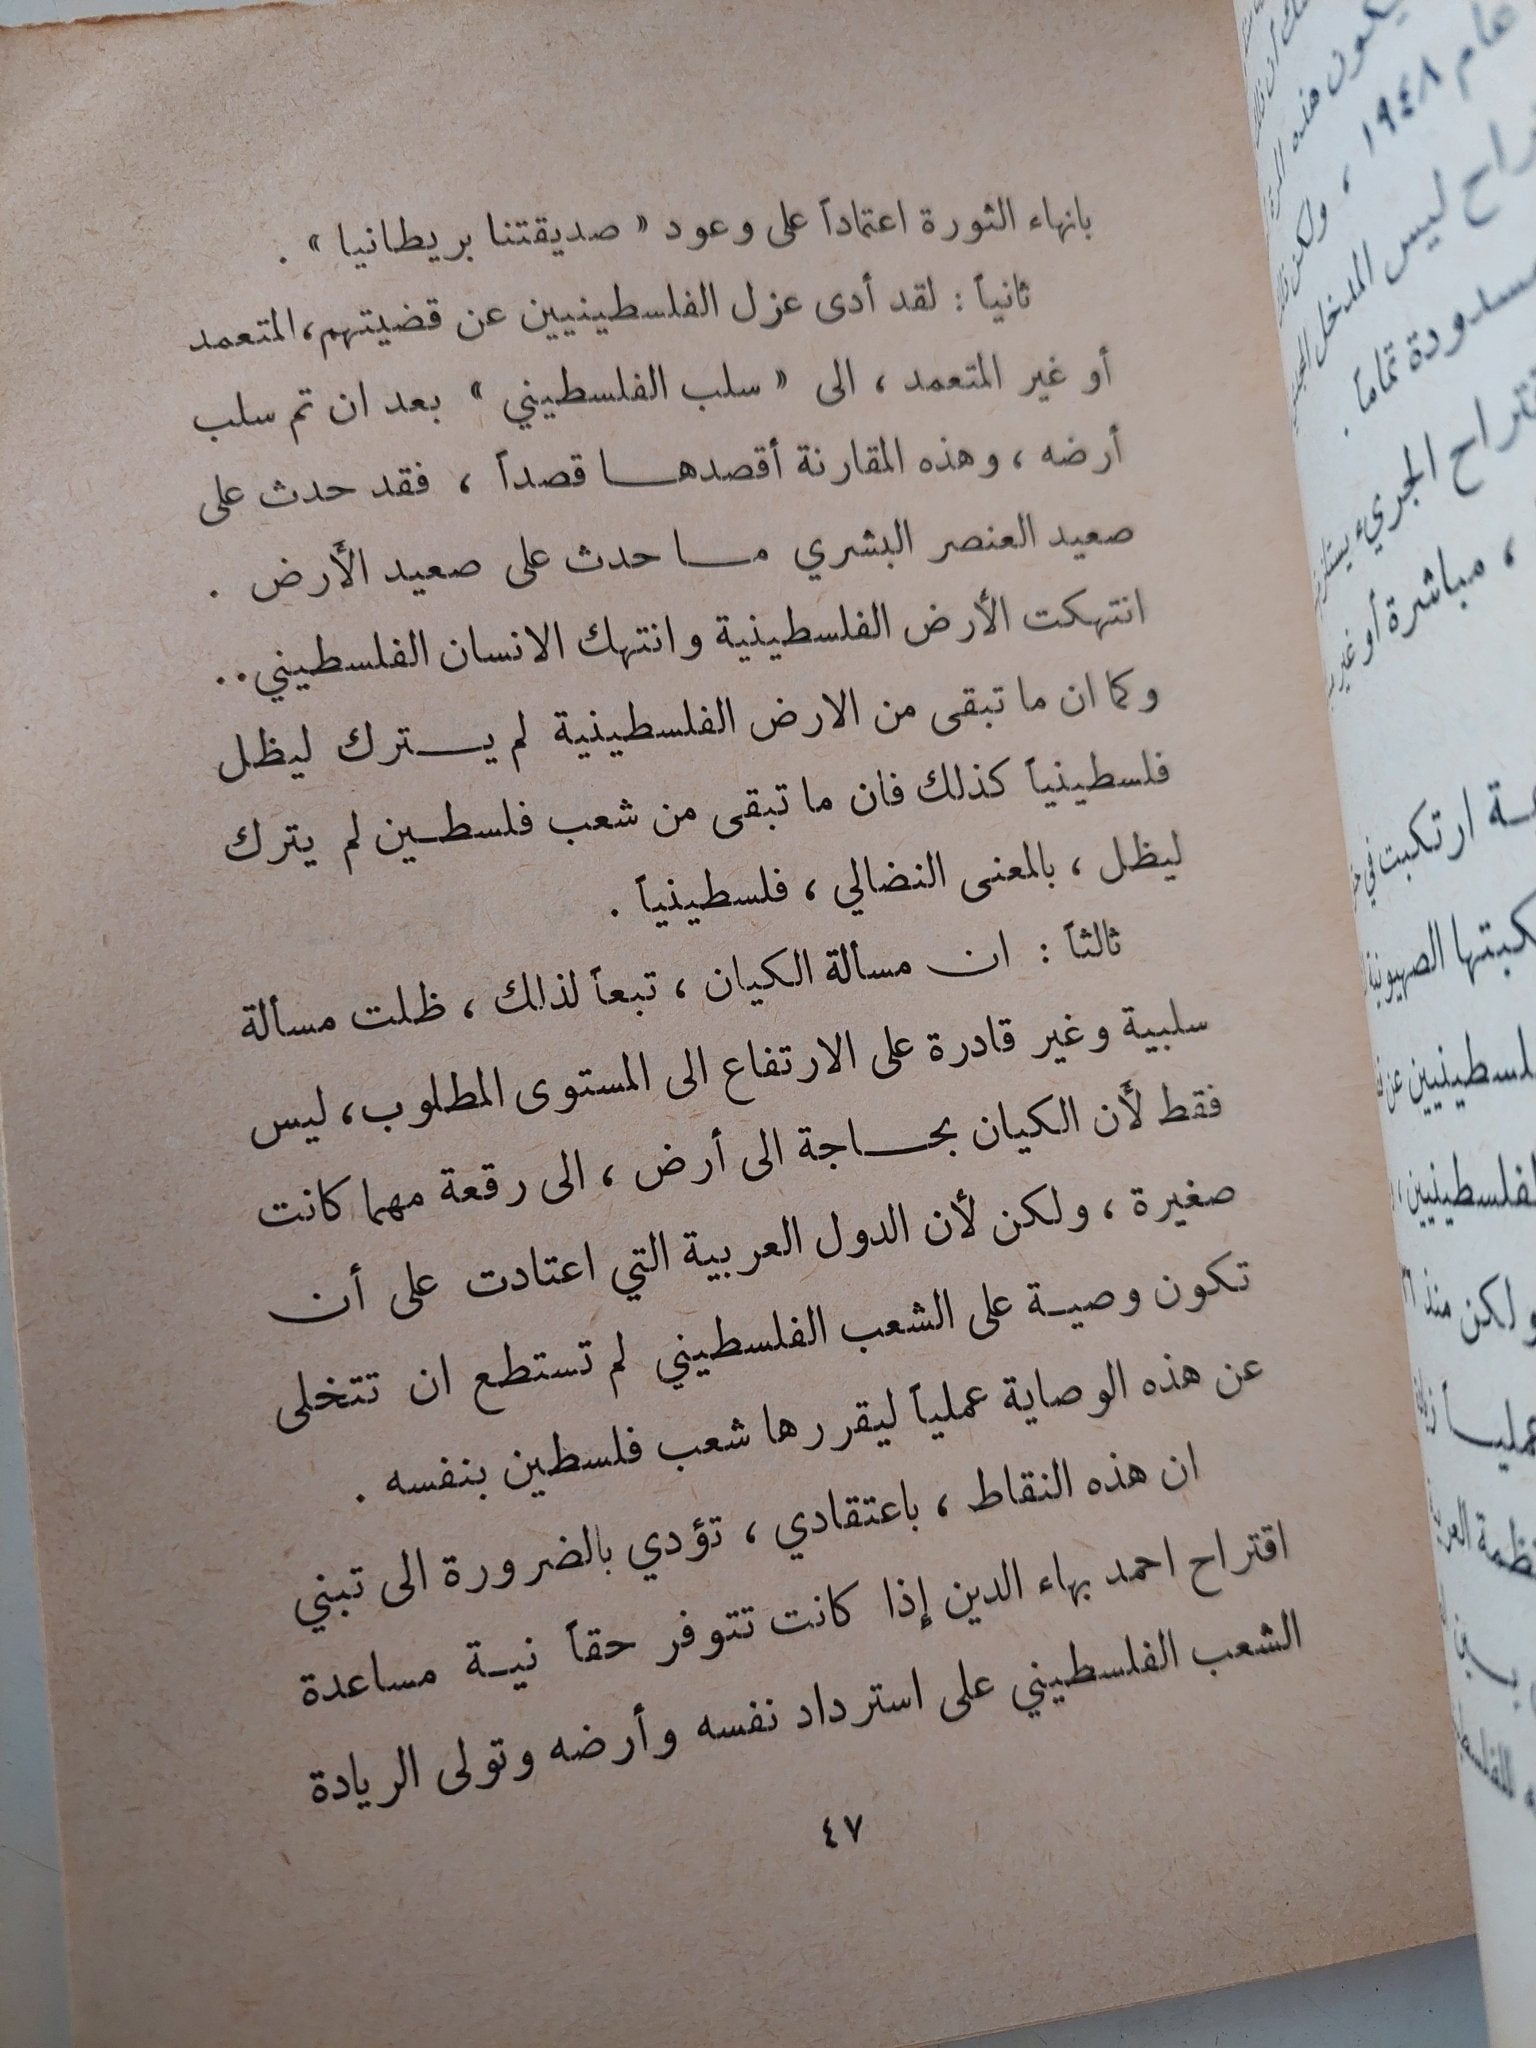 بانهاء الثورة اعتماداً على وعود « صديقتنا بريطانيا » .
ثانياً : لقد أدى عزل الفلسطينيين عن قضيتهم، المتعمد
أو غير المتعمد ، الى « سلب الفلسطيني » بعد ان تم سلب
أرضه ، وهذه المقارنة أقصدهـا قصداً ، فقد حدث على
صعيد العنصر البشري مـا حدث على صعيد الأرض .
انتهكت الأرض الفلسطينية وانتهك الانسان الفلسطيني..
وكما ان ما تبقى من الارض الفلسطينية لم يـترك ليظل
فلسطينياً كذلك فان ما تبقى من شعب فلسطـين لم يترك
ليظل ، بالمعنى النضالي ، فلسطينياً .
ثالثاً : ان مسألة الكيان ، تبعاً لذلك ، ظلت مسألة
سلبية وغير قادرة على الارتفاع الى المستوى المطلوب، ليس
فقط لأن الكيان بحـاجة الى أرض ، الى رقعة مهما كانت
صغيرة ، ولكن لأن الدول العربية التي اعتادت على أن
تكون وصيـة على الشعب الفلسطيني لم تستطع ان تتخلى
عن هذه الوصاية عملياً ليقررها شعب فلسطين بنفسه .
ان هذه النقاط ، باعتقادي ، تؤدي بالضرورة الى تبني
اقتراح احمد بهاء الدين إذا كانت تتوفر حقاً نيـة مساعدة
الشعب الفلسطيني على استرداد نفسه وأرضه وتولى الريادة
٤٧
عام ١٩٤٨ ، ولكن
ليس المدخل
تماماً .
الجريء
، مباشرة أو غير
ارتكبت في
الصهيونية
عن
ولكن منذ